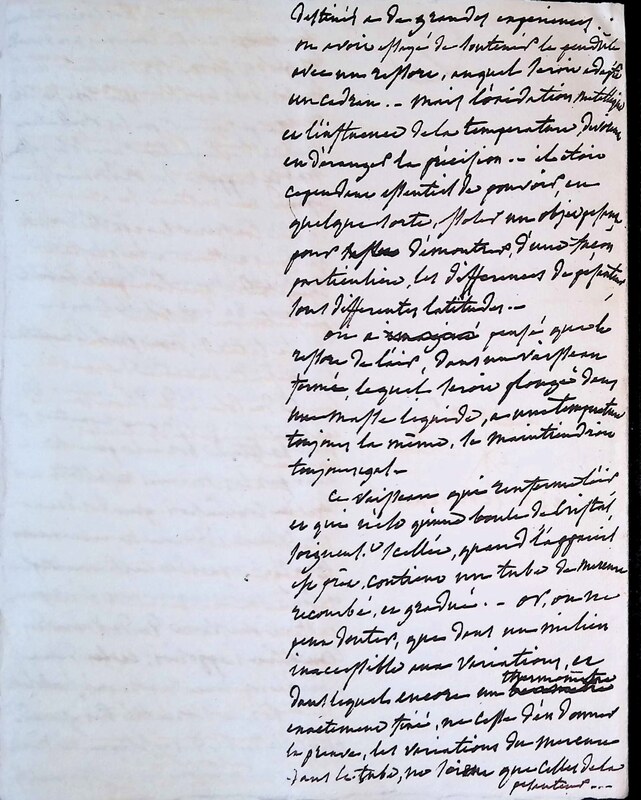 destinés a de grandes experiences.
on avoit essayé de soutenir le pendule
avec un ressort, auquel seroit adapté
un cadran. - mais l'oxidation metallique
et l'influence de la temperature devoient
en déranger la précision - il etoit
cependant essentiel de pouvoir en
quelque sorte, isoler un objet pesant
pour démontrer, d'une façon
particuliere, les differences de pesanteur
sous differentes latitudes. -
on a imaginé pensé que le
ressort de l'air, dans un vaisseau
fermé, lequel seroit plongé dans
une masse liquide, a une temperature
toujours la même, se maintiendroit
toujours egal -
Ce vaisseau qui renferme l'air
et qui n'est qu'une boule de cristal
soigneust. scellée, quand l'appareil
est contient un tube de mercure
recourbé, et gradué. - or, on ne
peut douter, que dans un milieu
inaccessible aux variations, et
dans lequel encore un thermomètre
exactement fixé, ne cesse d'en donner
la preuve, les variations du mercure
dans le tube, ne soient que celles de la
pesanteur. --